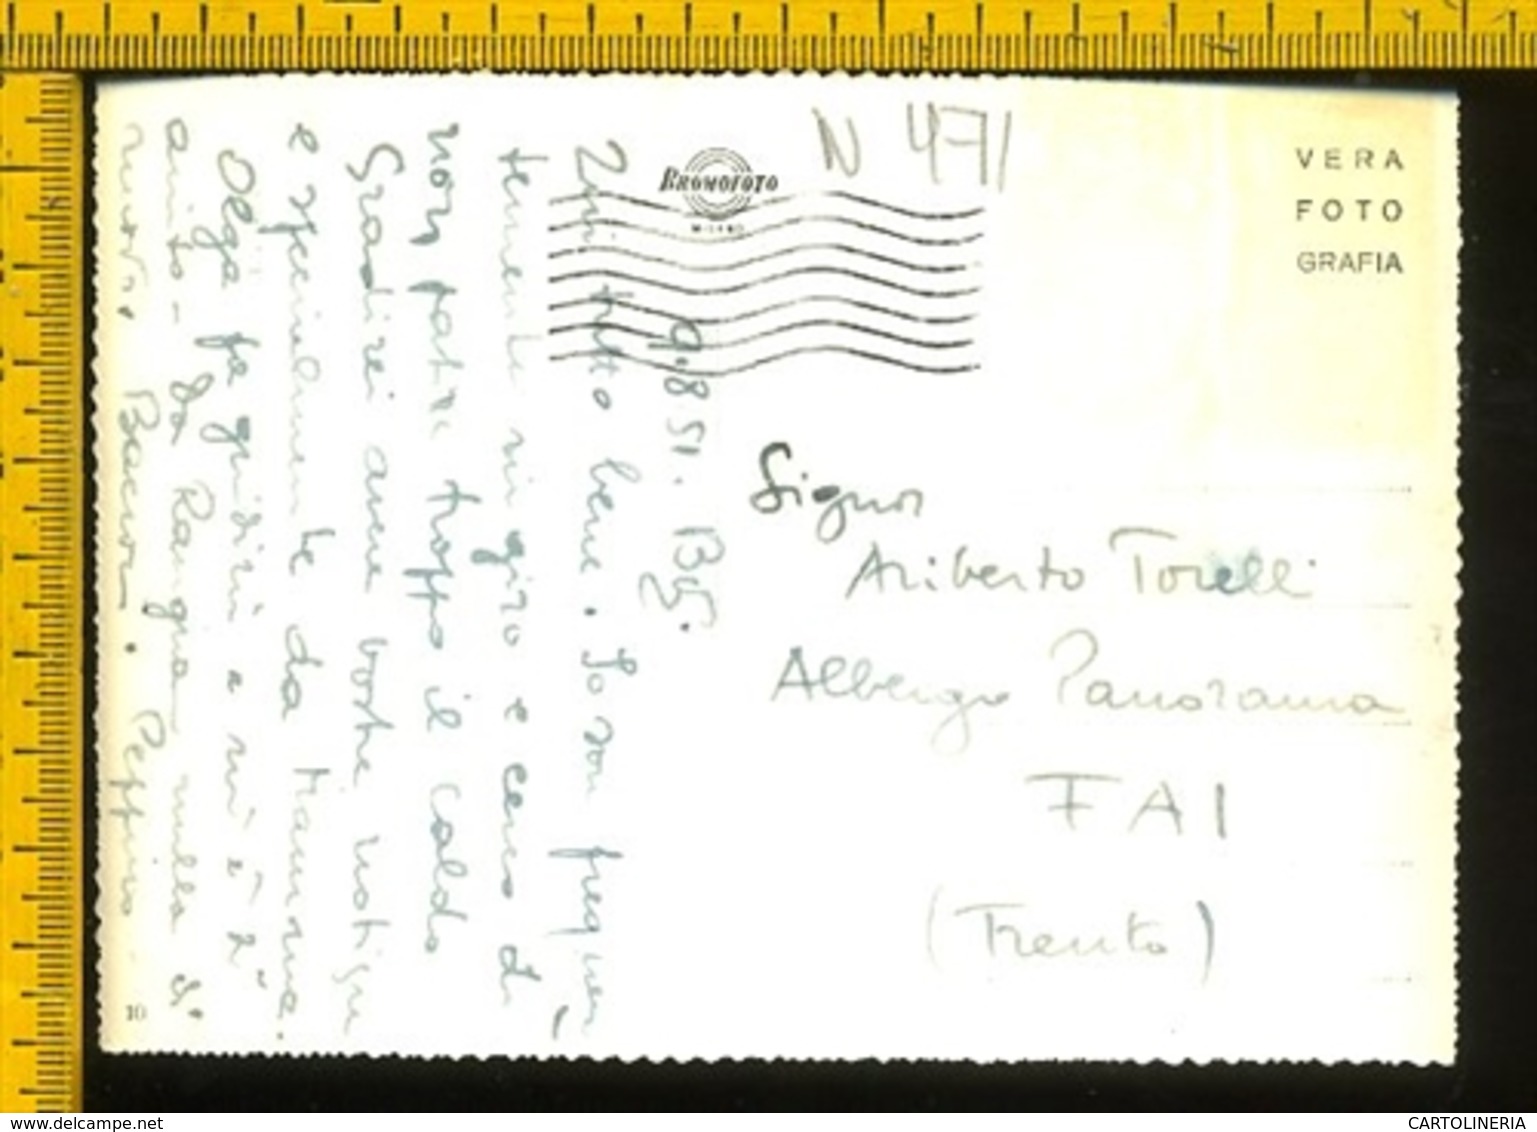 N 471
BROMOFOTO
MILANO
VERA
FOTO
GRAFIA
9.8 51. Bg.
Qui tutto bene. Io son frequen-
temente in giro e cerco di
non patire troppo il caldo
Gradirei avere vostre notizie
e specialmente da Mamma.
Olga fa giudizio e mi è
amito - Da Romagna nulla di
nuovo. Bacioni. Peppino -
Signor
Ariberto Torelli
Albergo Panorama
FAI
(Trento)
10
www.delcampe.net
CARTOLINERIA